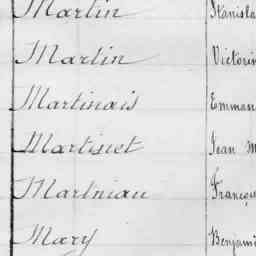 Martin Stanisla
Martin Victorin
Martinais Emman
Martinet Jean M
Martniau François
Mary Benjami